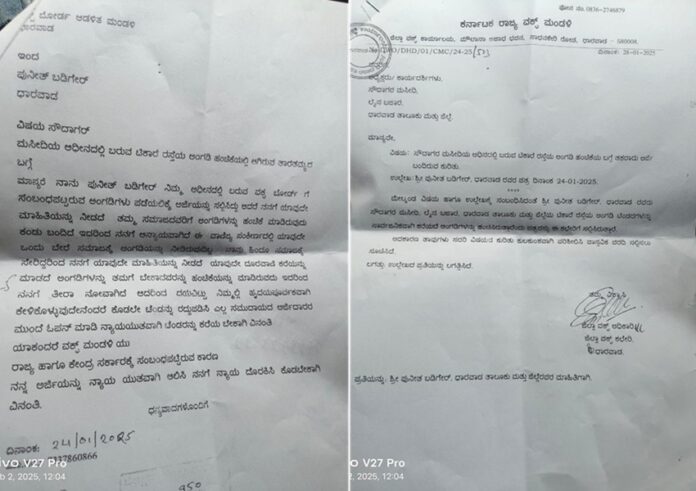 ಬೋರ್ಡ ಆಡಳಿತ ಮಂಡಳಿ
ಧಾರವಾಡ
ಇಂದ
ಪುನೀತ್ ಬಡಿಗೇರ್
ಧಾರವಾಡ
ವಿಷಯ ಸೌದಾಗರ್
ಮಸೀದಿಯ ಅಧೀನದಲ್ಲಿ ಬರುವ ಟಿಕಾರೆ ರಸ್ತೆಯ ಅಂಗಡಿ ಹಂಚಿಕೆಯಲ್ಲಿ ಆಗಿರುವ ತಾರತಮ್ಯದ
ಬಗ್ಗೆ
ಮಾನ್ಯರೆ ನಾನು ಪುನೀತ್ ಬಡಿಗೇರ್ ನಿಮ್ಮ ಅಧೀನದಲ್ಲಿ ಬರುವ ವಕ್ಫ ಬೋರ್ಡ್ ಗೆ
ಸಂಬಂಧಪಟ್ಟಿರುವ ಅಂಗಡಿಗಳು ಪಡೆಯಲಿಕ್ಕೆ ಅರ್ಜಿಯನ್ನು ಸಲ್ಲಿಸಿದ್ದು ಆದರೆ ನನಗೆ ಯಾವುದೇ
ಮಾಹಿತಿಯನ್ನು ನೀಡದೆ ತಮ್ಮ ಸಮಾಜದವರಿಗೆ ಅಂಗಡಿಗಳನ್ನು ಹಂಚಿಕೆ ಮಾಡಿರುವುದು
ಕಂಡು ಬಂದಿದೆ ಇದರಿಂದ ನನಗೆ ಅನ್ಯಾಯವಾಗಿದೆ ಈ ವಾಣಿಜ್ಯ ಸಂಕೀರ್ಣದಲ್ಲಿ ಯಾವುದೇ
ಒಂದು ಬೇರೆ ಸಮಾಜಕ್ಕೆ ಅಂಗಡಿಯನ್ನು ನೀಡಿರುವುದಿಲ್ಲ ನಾನು ಹಿಂದೂ ಸಮಾಜಕ್ಕೆ
ಸೇರಿದ್ದರಿಂದ ನನಗೆ ಯಾವುದೇ ಮಾಹಿತಿಯನ್ನು ನೀಡದೆ ಯಾವುದೇ ದೂರವಾಣಿ ಕರೆಯನ್ನು
ಮಾಡದೆ ಅಂಗಡಿಗಳನ್ನು ತಮಗೆ ಬೇಕಾದವರನ್ನು ಹಂಚಿಕೆಯನ್ನು ಮಾಡಿರುವದು ಇದರಿಂದ
ನನಗೆ ತೀರಾ ನೋವಾಗಿದೆ ಆದಲರಿಂದ ದಯವಿಟ್ಟು ನಿಮ್ಮಲ್ಲಿ ಹೃದಯಪೂರ್ವಕವಾಗಿ
ಕೇಳಿಕೊಳ್ಳುವುದೇನೆಂದರೆ ಕೂಡಲೇ ಟೆಂಡನ್ನು ರದ್ದುಪಡಿಸಿ ಎಲ್ಲ ಸಮುದಾಯದ ಅರ್ಜಿದಾರರ
ಮುಂದೆ ಓಪನ್ ಮಾಡಿ ನ್ಯಾಯಯುತವಾಗಿ ಟೆಂಡರನ್ನು ಕರೆಯ ಬೇಕಾಗಿ ವಿನಂತಿ
ಯಾಕಂದರೆ ವಕ್ಫ್ ಮಂಡಳಿ ಯು
ರಾಜ್ಯ ಹಾಗೂ ಕೇಂದ್ರ ಸರ್ಕಾರಕ್ಕೆ ಸಂಬಂಧಪಟ್ಟಿರುವ ಕಾರಣ
ನನ್ನ ಅರ್ಜಿಯನ್ನು ನ್ಯಾಯ ಯುತವಾಗಿ ಆಲಿಸಿ ನನಗೆ ನ್ಯಾಯ ದೊರಕಿಸಿ ಕೊಡಬೇಕಾಗಿ
ವಿನಂತಿ.
ಧನ್ಯವಾದಗಳೊಂದಿಗೆ
ದಿನಾಂಕ: 24/01/2025
7337860866
950
vivo V27 Pro
Feb 2, 2025, 12:04
ಫೋನ ನಂ. 0836-2746879
ಕರ್ನಾಟಕ ರಾಜ್ಯ ವಕ್ಫ್ ಮಂಡಳಿ
ಜಿಲ್ಲಾ ವಕ್ಫ್ ಕಾರ್ಯಾಲಯ, ಮೌಲಾನಾ ಆಜಾದ ಭವನ, ಸಾಧನಕೇರಿ ರೋಡ, ಧಾರವಾಡ - 580008.
/DHD/01/CMC/24-25/ ದಿನಾಂಕ: 28-01-2025
ಅಧ್ಯಕ್ಷರು/ ಕಾರ್ಯದರ್ಶಿಗಳು,
ಸೌದಾಗರ ಮಸೀದಿ,
ಲೈನ ಬಜಾರ,
ಧಾರವಾಡ ತಾಲೂಕು ಮತ್ತು ಜಿಲ್ಲೆ.
ಮಾನ್ಯರೇ,
ವಿಷಯ: ಸೌದಾಗರ ಮಸೀದಿಯ ಅಧೀನದಲ್ಲಿ ಬರುವ ಟಿಕಾರೆ ರಸ್ತೆಯ ಅಂಗಡಿ ಹಂಚಿಕೆಯ ಬಗ್ಗೆ ತಕರಾರು ಅರ್ಜಿ
ಬಂದಿರುವ ಕುರಿತು.
ಉಲ್ಲೇಖ: ಶ್ರೀ ಪುನೀತ ಬಡಿಗೇರ, ಧಾರವಾಡ ರವರ ಪತ್ರ ದಿನಾಂಕ 24-01-2025.
****
ಮೇಲ್ಕಂಡ ವಿಷಯ ಹಾಗೂ ಉಲ್ಲೇಖಕ್ಕೆ ಸಂಬಂಧಿಸಿದಂತೆ ಶ್ರೀ ಪುನೀತ ಬಡಿಗೇರ, ಧಾರವಾಡ ರವರು
ಸೌದಾಗರ ಮಸೀದಿ, ಲೈನ ಬಜಾರ, ಧಾರವಾಡ ತಾಲೂಕು ಮತ್ತು ಜಿಲ್ಲೆಯ ಟಿಕಾರೆ ರಸ್ತೆಯ ಅಂಗಡಿ ಟೆಂಡರಗಳನ್ನು
ಸಾರ್ವಜನಿಕವಾಗಿ ಕರೆಯದೆ ಅಂಗಡಿಗಳನ್ನು ಹಂಚಿಕೊಂಡಿರುತ್ತಾರೆಂದು ಪತ್ರವನ್ನು ಈ ಕಚೇರಿಗೆ ಸಲ್ಲಿಸಿರುತ್ತಾರೆ.
ಆದಕಾರಣ ತಾವುಗಳು ಸದರಿ ವಿಷಯದ ಕುರಿತು ಕುಲಂಕುಶವಾಗಿ ಪರಿಶೀಲಿಸಿ ವಾಸ್ತವಿಕ ವರದಿ ಸಲ್ಲಿಸಲು
ಸೂಚಿಸಿದೆ.
ಲಗತ್ತು: ಉಲ್ಲೇಖದ ಪ್ರತಿಯನ್ನು ಲಗತ್ತಿಸಿದೆ.
ತಮ್ಮ ವಿಶ್ವಾಸಿ
ಜಿಲ್ಲಾ ವಕ್ಫ್ ಅಧಿಕಾರಿ
ಜಿಲ್ಲಾ ವಕ್ಫ್ ಕಚೇರಿ,
ಧಾರವಾಡ.
ಪ್ರತಿಯನ್ನು: ಶ್ರೀ ಪುನೀತ ಬಡಿಗೇರ, ಧಾರವಾಡ ತಾಲೂಕು ಮತ್ತು ಜಿಲ್ಲೆರವರ ಮಾಹಿತಿಗಾಗಿ.
vivo V27 Pro
Feb 2, 2025, 12:04